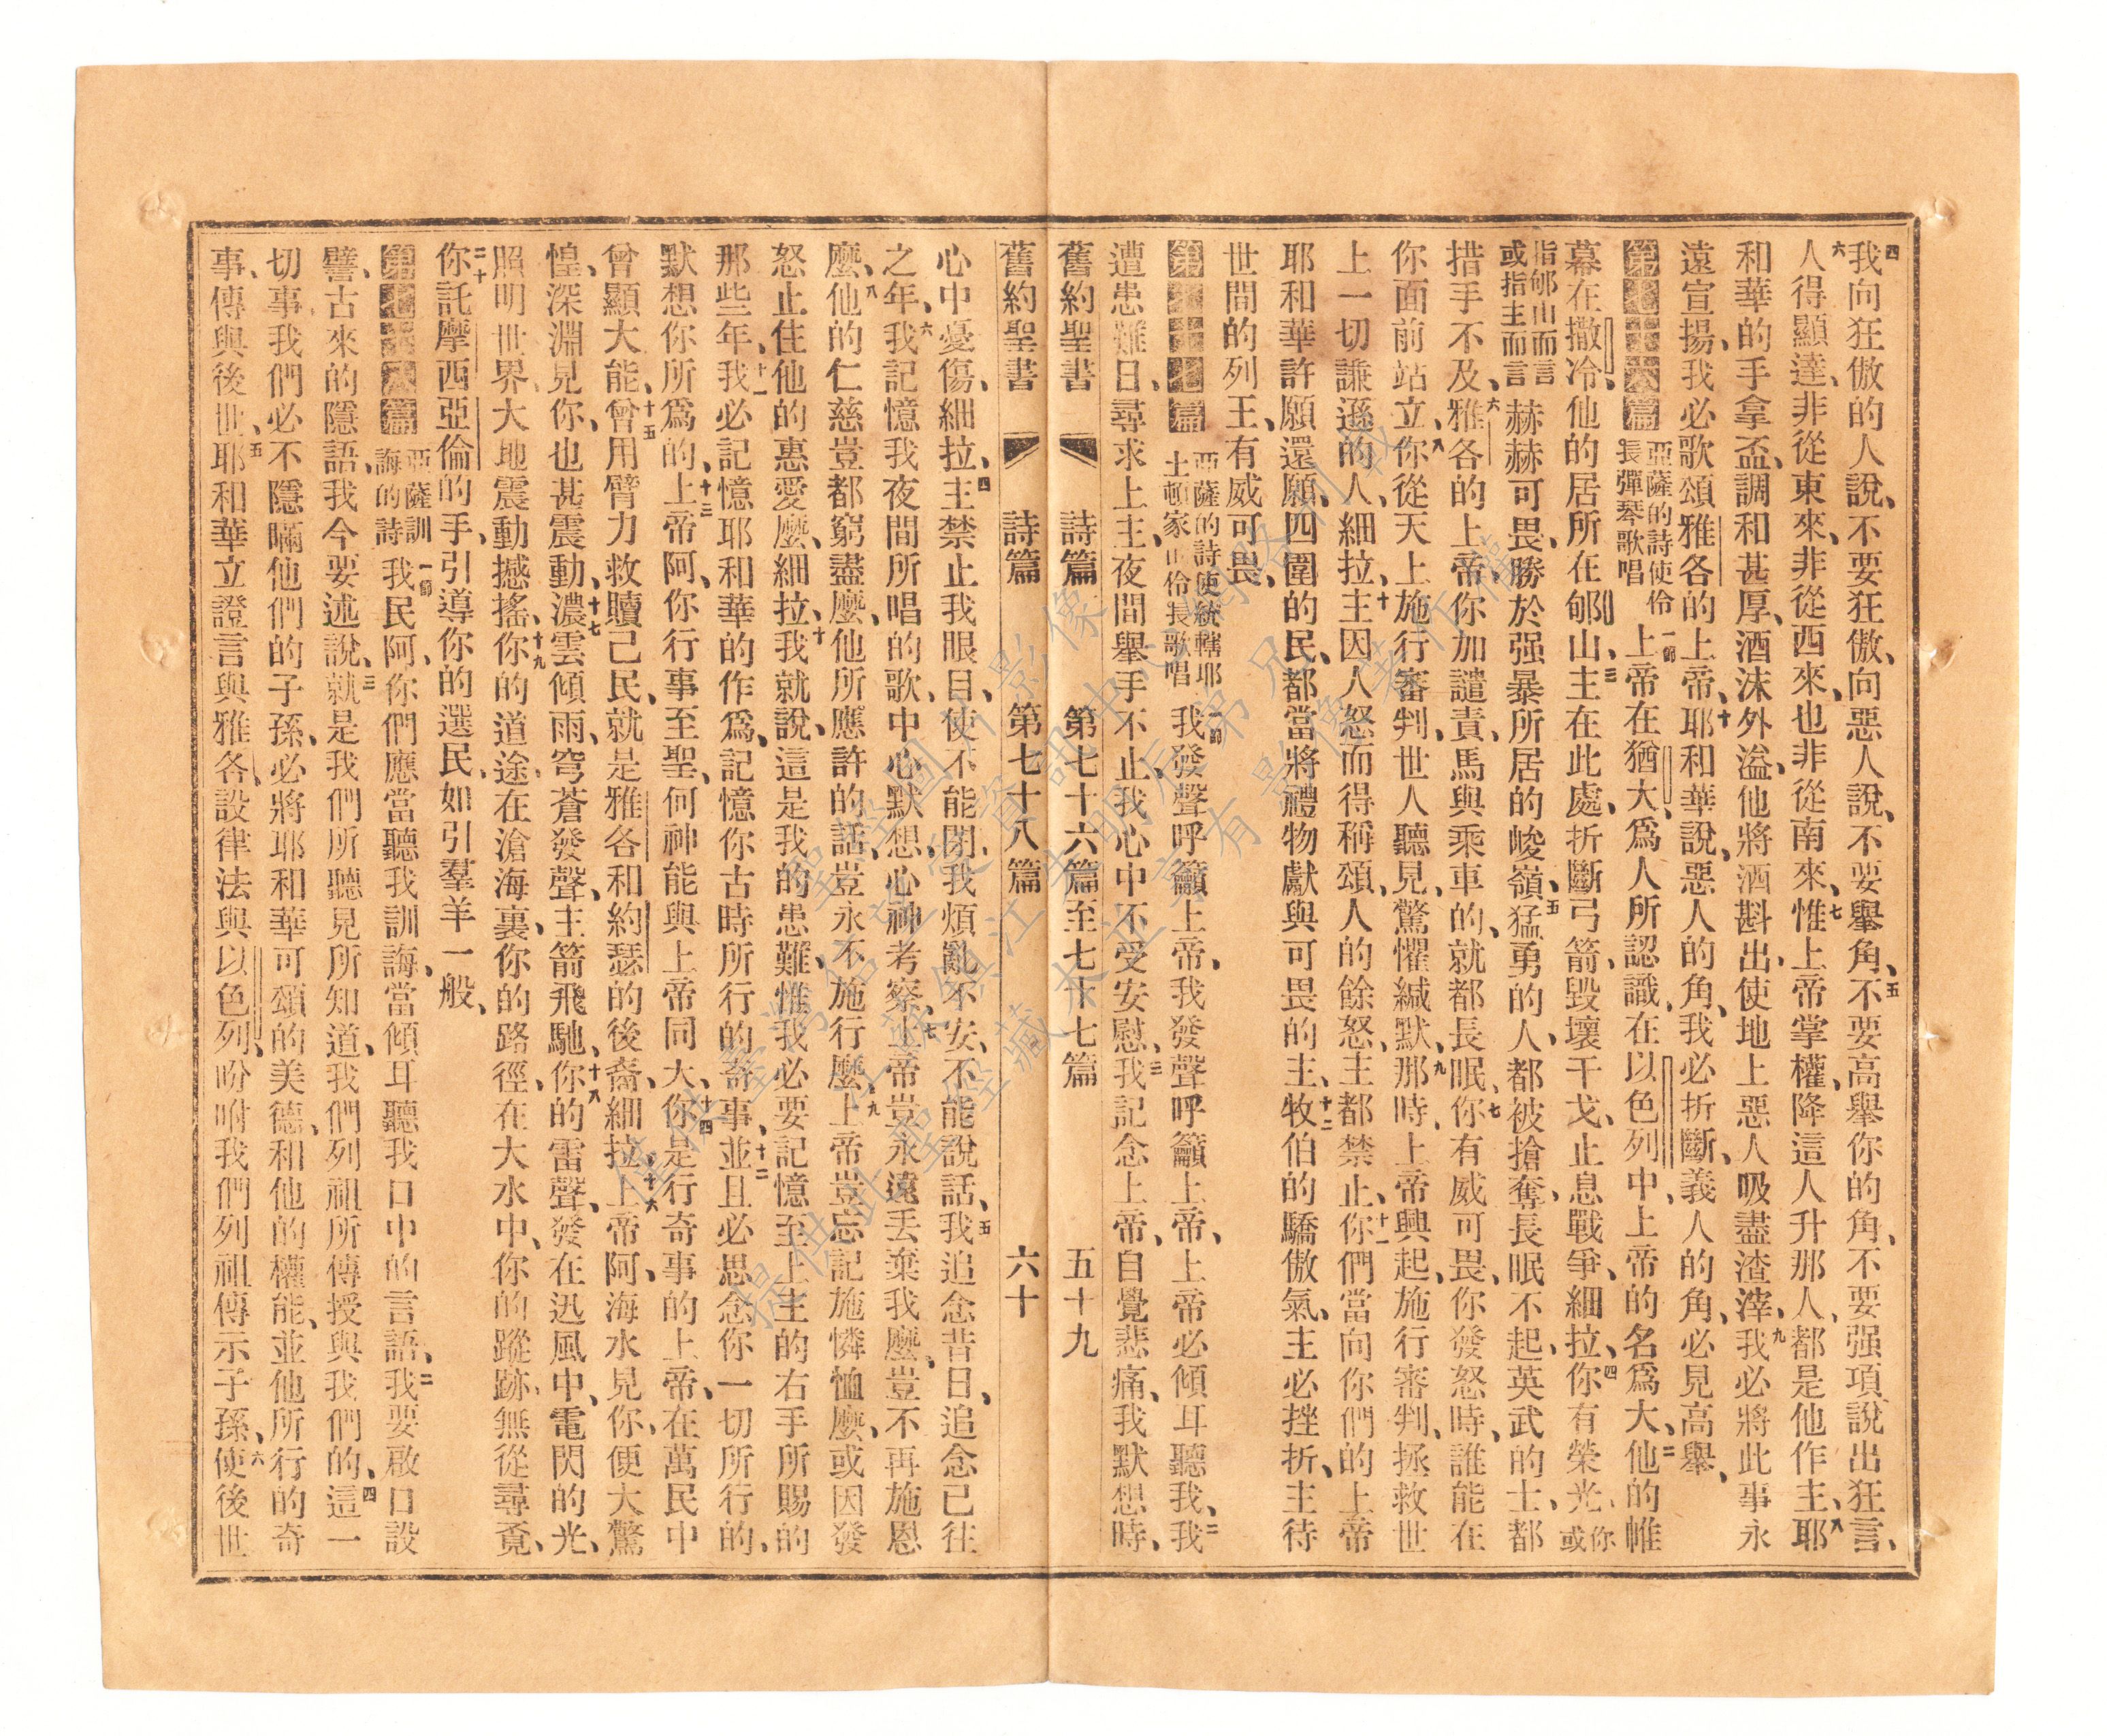 四我向狂傲的人說、不要狂傲、向惡人說、不要舉角、五不要高舉你的角、不要强項說出狂言、
六人得顯達、非從東來、非從西來、也非從南來、七惟上帝掌權、降這人升那人、都是他作主、八耶
和華的手拿盃、調和甚厚、酒沫外溢、他將酒斟出、使地上惡人吸盡渣滓、九我必將此事永
遠宣揚、我必歌頌雅各的上帝、十耶和華說、惡人的角、我必折斷、義人的角、必見高舉、
第七十六篇 亞薩的詩使伶長彈琴歌唱 一節上帝在猶大、爲人所認識、在以色列中、上帝的名爲大、二他的帷
幕在撒冷、他的居所在郇山、三主在此處、折斷弓箭、毀壞干戈、止息戰爭、細拉、四你有榮光、你或
指郇山而言或指主而言赫赫可畏、勝於强暴所居的峻嶺、五猛勇的人、都被搶奪、長眠不起、英武的士、都
措手不及、六雅各的上帝、你加譴責、馬與乘車的、就都長眠、七你有威可畏、你發怒時、誰能在
你面前站立、八你從天上施行審判、世人聽見、驚懼緘默、九那時上帝興起、施行審判、拯救世
上一切謙遜的人、細拉、十主因人怒而得稱頌、人的餘怒、主都禁止、十一你們當向你們的上帝
耶和華許願還願、四圍的民、都當將禮物獻與可畏的主、十二牧伯的驕傲氣、主必挫折、主待
世間的列王、有威可畏、
第七十七篇 亞薩的詩使統轄耶土頓家的伶長歌唱 一節我發聲呼籲上帝、我發聲呼籲上帝、上帝必傾耳聽我、二我
遭患難日、尋求上主、夜間舉手不止、我心中不受安慰、三我記念上帝、自覺悲痛、我默想時、
舊約聖書 詩篇 第七十六篇至七十七篇 五十九
舊約聖書 詩篇 第七十八篇 六十
心中憂傷、細拉、四主禁止我眼目、使不能閉、我煩亂不安、不能說話、五我追念昔日、追念已往
之年、六我記憶我夜間所唱的歌、中心默想、心神考察、七上帝豈永遠丟棄我麼、豈不再施恩
麼、八他的仁慈豈都窮盡麼、他所應許的話、豈永不施行麼、九上帝豈忘記施憐恤麼、或因發
怒止住他的惠愛麼、細拉、十我就說、這是我的患難、惟我必要記憶至上主的右手所賜的
那些年、十一我必記憶耶和華的作爲、記憶你古時所行的奇事、十二並且必思念你一切所行的、
默想你所爲的、十三上帝阿、你行事至聖、何神能與上帝同大、十四你是行奇事的上帝、在萬民中
曾顯大能、十五曾用臂力救贖己民、就是雅各和約瑟的後裔、細拉、十六上帝阿、海水見你、便大驚
惶、深淵見你、也甚震動、十七濃雲傾雨、穹蒼發聲、主箭飛馳、十八你的雷聲、發在迅風中、電閃的光、
照明世界、大地震動撼搖、十九你的道途在滄海裏、你的路徑、在大水中、你的蹤跡、無從尋覓、
二十你託摩西亞倫的手、引導你的選民、如引羣羊一般、
第七十八篇 亞薩訓誨的詩 一節我民阿、你們應當聽我訓誨、當傾耳聽我口中的言語、二我要啟口設
譬、古來的隱語、我今要述說、三就是我們所聽見所知道、我們列祖所傳授與我們的、四這一
切事我們必不隱瞞他們的子孫、必將耶和華可頌的美德、和他的權能、並他所行的奇
事、傳與後世、五耶和華立證言與雅各、設律法與以色列、吩咐我們列祖傳示子孫、六使後世